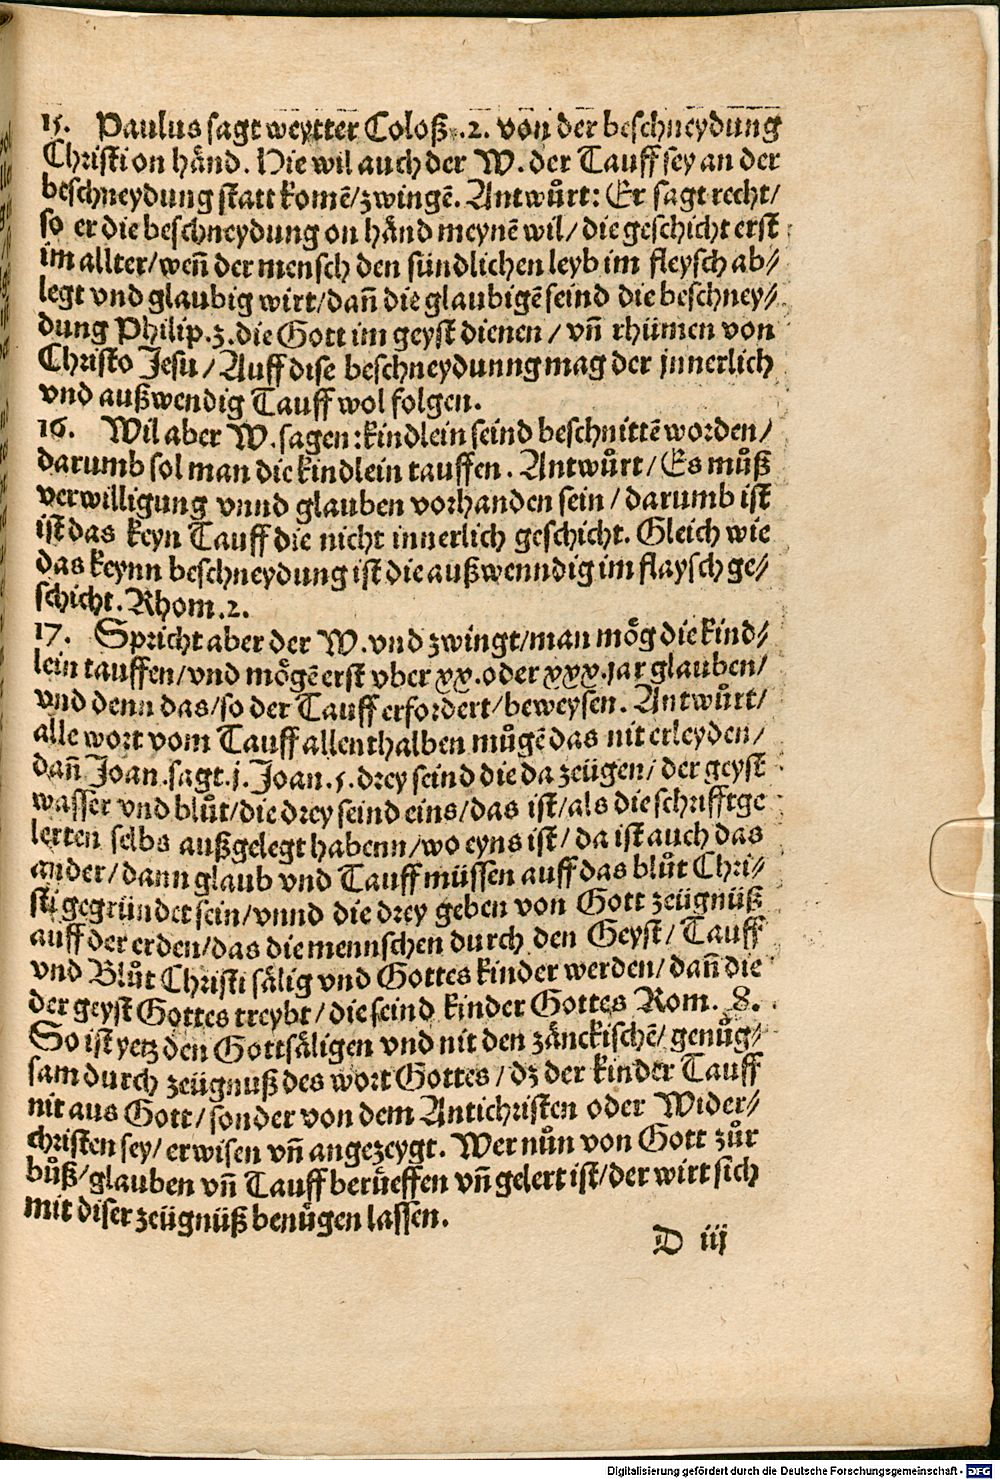 15. Paulus sagt weytter Coloß .2. von der beschneydung
Christi on händ. Hie wil auch der W. der Tauff sey an der
beschneydung statt komē/zwingē. Antwůrt: Er sagt recht/
so er die beschneydung on händ meynē wil/ die geschicht erst
im allter/ weñ der mensch den sündlichen leyb im fleysch ab⸗/
legt vnd glaubig wirt/dañ die glaubigē seind die beschney⸗/
dung Philip.3.die Gott im geyst dienen / vñ rhümen von
Christo Jesu / Auff dise beschneydunng mag der jnnerlich
vnd außwendig Tauff wol folgen.
16. Wil aber W. sagen: kindlein seind beschnittē worden/
darumb sol man die kindlein tauffen. Antwůrt/ Es můß
verwilligung vnnd glauben vorhanden sein / darumb ist
ist das keyn Tauff die nicht innerlich geschicht. Gleich wie
das keynn beschneydung ist die außwenndig im flaysch ge⸗/
schicht. Rhom.2.
17. Spricht aber der W. vnd zwingt/man mög die kind⸗/
lein tauffen/vnd mögē erst vber xx. oder xxx.jar glauben/
vnd denn das/so der Tauff erfordert/beweysen. Antwůrt/
alle wort vom Tauff allenthalben můgē das nit erleyden/
dañ Joan.sagt.j.Joan.5.drey seind die da zeügen/ der geyst
wasser vnd blůt/die drey seind eins/das ist/als die schrifftge
lerten selbs außgelegt habenn/wo eyns ist/ da ist auch das
ander/dann glaub vnd Tauff müssen auff das blůt Chri⸗/
sti gegründet sein/vnnd die drey geben von Gott zeügnüß
auff der erden/das die mennschen durch den Geyst/ Tauff
vnd Blůt Christi sälig vnd Gottes kinder werden/ dañ die
der geyst Gottes treybt/ die seind kinder Gottes Rom. 8.
So ist yetz den Gottsäligen vnd nit den zänckischē/ genůg⸗/
sam durch zeügnuß des wort Gottes / dz der kinder Tauff
nit aus Gott/ sonder von dem Antichristen oder Wider⸗/
christen sey/ erwisen vñ angezeygt. Wer nůn von Gott zůr
bůß/glauben vñ Tauff berüeffen vñ gelert ist/der wirt sich
mit diser zeügnüß benügen lassen.
D iij
Digitalisierung gefördert durch die Deutsche Forschungsgemeinschaft - DFG